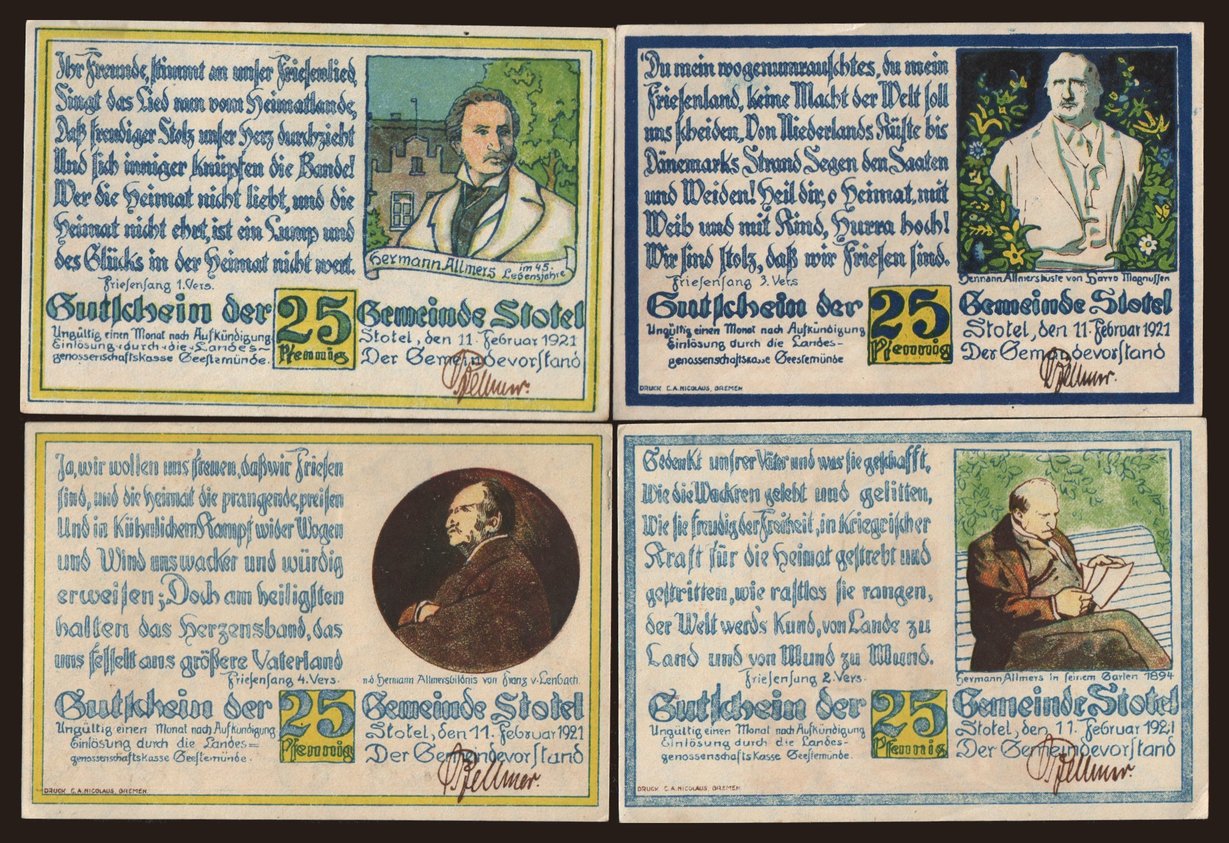 Ihr Freunde, stimmt an unser Friesenlied,
Singt das Lied nun vom Heimatlande,
Daß freudiger Stolz unser Herz durchzieht
Und sich inniger knüpfen die Bande!
Wer die Heimat nicht liebt, und die
Heimat nicht ehrt, ist ein Lump und
des Glücks in der Heimat nicht wert.
Friesensang 1. Vers.
Hermann Allmers im 45. Lebensjahre
Gutschein der 25 Pfennig Gemeinde Stotel
Ungültig einen Monat nach Aufkündigung
Einlösung durch die Landes-
genossenschaftskasse Geestemünde.
Stotel, den 11. Februar 1921
Der Gemeindevorstand
'Du mein wogenumrauschtes, du mein
Friesenland, keine Macht der Welt soll
uns scheiden, Von Niederlands Küste bis
Dänemarks Strand Segen den Saaten
und Weiden! Heil dir, o Heimat, mit
Weib und mit Kind, Hurra hoch!
Wir sind stolz, daß wir Friesen sind.
Friesensang 3. Vers
Hermann Allmersbüste von Harro Magnussen
Gutschein der 25 Pfennig Gemeinde Stotel
Ungültig einen Monat nach Aufkündigung
Einlösung durch die Landes-
genossenschaftskasse Geestemünde
Stotel, den 11. Februar 1921
Der Gemeindevorstand
DRUCK C.A. NICOLAUS, BREMEN
Ja, wir wollen uns freuen, daß wir Friesen
sind, und die Heimat die prangende, preisen
Und in Kühnlichem Kampf wider Wogen
und Wind uns wacker und würdig
erweisen; Doch am heiligsten
halten das Herzensband, das
uns fesselt ans größere Vaterland
Friesensang 4. Vers.
n.d. Hermann Allmersbildnis von Franz v. Lenbach.
Gutschein der 25 Pfennig Gemeinde Stotel
Ungültig einen Monat nach Aufkündigung
Einlösung durch die Landes=
genossenschaftskasse Geestemünde.
Stotel, den 11. Februar 1921
Der Gemeindevorstand
DRUCK C.A. NICOLAUS, BREMEN.
Gedenkt unsrer Väter und was sie geschafft,
Wie die Wackren gelebt und gelitten,
Wie sie freudig der Freiheit, in Kriegrischer
Kraft für die Heimat gestrebt und
gestritten, wie rastlos sie rangen,
der Welt werds Kund, von Lande zu
Land und von Mund zu Mund.
Friesensang 2. Vers.
Hermann Allmers in seinem Garten 1894
Gutschein der 25 Pfennig Gemeinde Stotel
Ungültig einen Monat nach Aufkündigung
Einlösung durch die Landes-
genossenschaftskasse Geestemünde.
Stotel, den 11. Februar 1921
Der Gemeindevorstand
DRUCK C.A. NICOLAUS, BREMEN